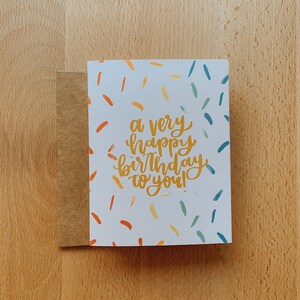 a very
happy
birthday
to you!